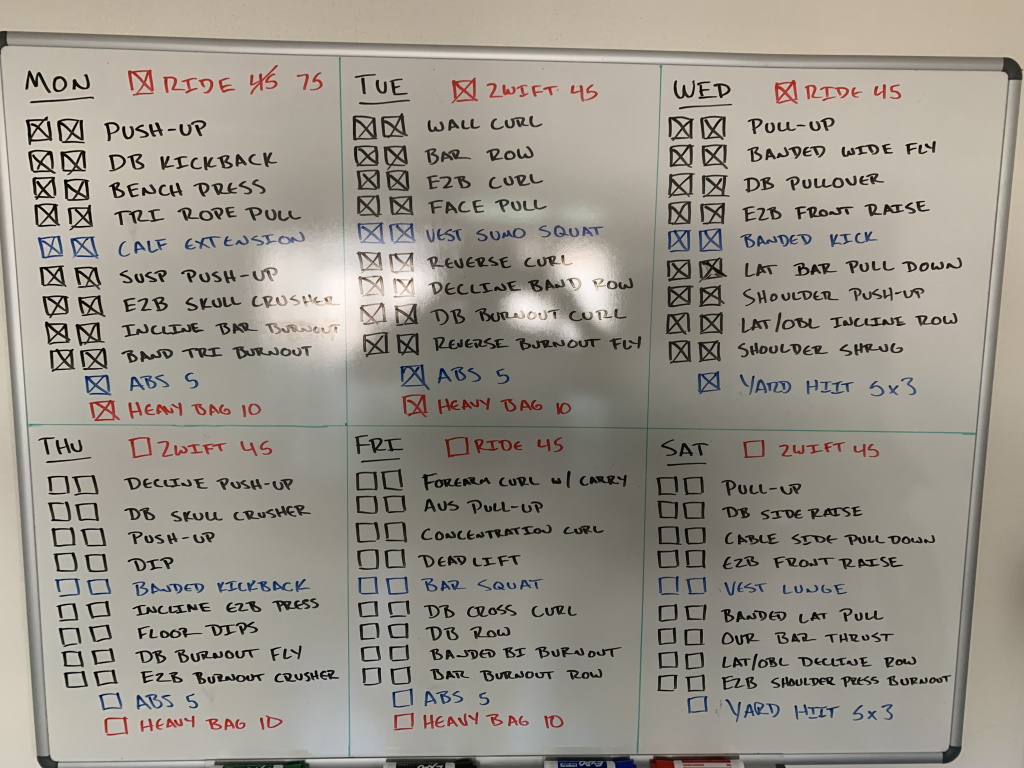 MON ☒ RIDE 4̶5̶ 75
☒☒ PUSH-UP
☒☒ DB KICKBACK
☒☒ BENCH PRESS
☒☒ TRI ROPE PULL
☒☒ CALF EXTENSION
☒☒ SUSP PUSH-UP
☒☒ EZB SKULL CRUSHER
☒☒ INCLINE BAR BURNOUT
☒☒ BAND TRI BURNOUT
☒ ABS 5
☒ HEAVY BAG 10
TUE ☒ ZWIFT 45
☒☒ WALL CURL
☒☒ BAR ROW
☒☒ EZB CURL
☒☒ FACE PULL
☒☒ VEST SUMO SQUAT
☒☒ REVERSE CURL
☒☒ DECLINE BAND ROW
☒☒ DB BURNOUT CURL
☒☒ REVERSE BURNOUT FLY
☒ ABS 5
☒ HEAVY BAG 10
WED ☒ RIDE 45
☒☒ PULL-UP
☒☒ BANDED WIDE FLY
☒☒ DB PULLOVER
☒☒ EZB FRONT RAISE
☒☒ BANDED KICK
☒☒ LAT BAR PULL DOWN
☒☒ SHOULDER PUSH-UP
☒☒ LAT/OBL INCLINE ROW
☒☒ SHOULDER SHRUG
☒ YARD HIIT 5x3
THU ☐ ZWIFT 45
☐☐ DECLINE PUSH-UP
☐☐ DB SKULL CRUSHER
☐☐ PUSH-UP
☐☐ DIP
☐☐ BANDED KICKBACK
☐☐ INCLINE EZB PRESS
☐☐ FLOOR DIPS
☐☐ DB BURNOUT FLY
☐☐ EZB BURNOUT CRUSHER
☐ ABS 5
☐ HEAVY BAG 10
FRI ☐ RIDE 45
☐☐ FOREARM CURL W/ CARRY
☐☐ AUS PULL-UP
☐☐ CONCENTRATION CURL
☐☐ DEADLIFT
☐☐ BAR SQUAT
☐☐ DB CROSS CURL
☐☐ DB ROW
☐☐ BANDED BI BURNOUT
☐☐ BAR BURNOUT ROW
☐ ABS 5
☐ HEAVY BAG 10
SAT ☐ ZWIFT 45
☐☐ PULL-UP
☐☐ DB SIDE RAISE
☐☐ CABLE SIDE PULL DOWN
☐☐ EZB FRONT RAISE
☐☐ VEST LUNGE
☐☐ BANDED LAT PULL
☐☐ OUR BAR THRUST
☐☐ LAT/OBL DECLINE ROW
☐☐ EZB SHOULDER PRESS BURNOUT
☐ YARD HIIT 5x3